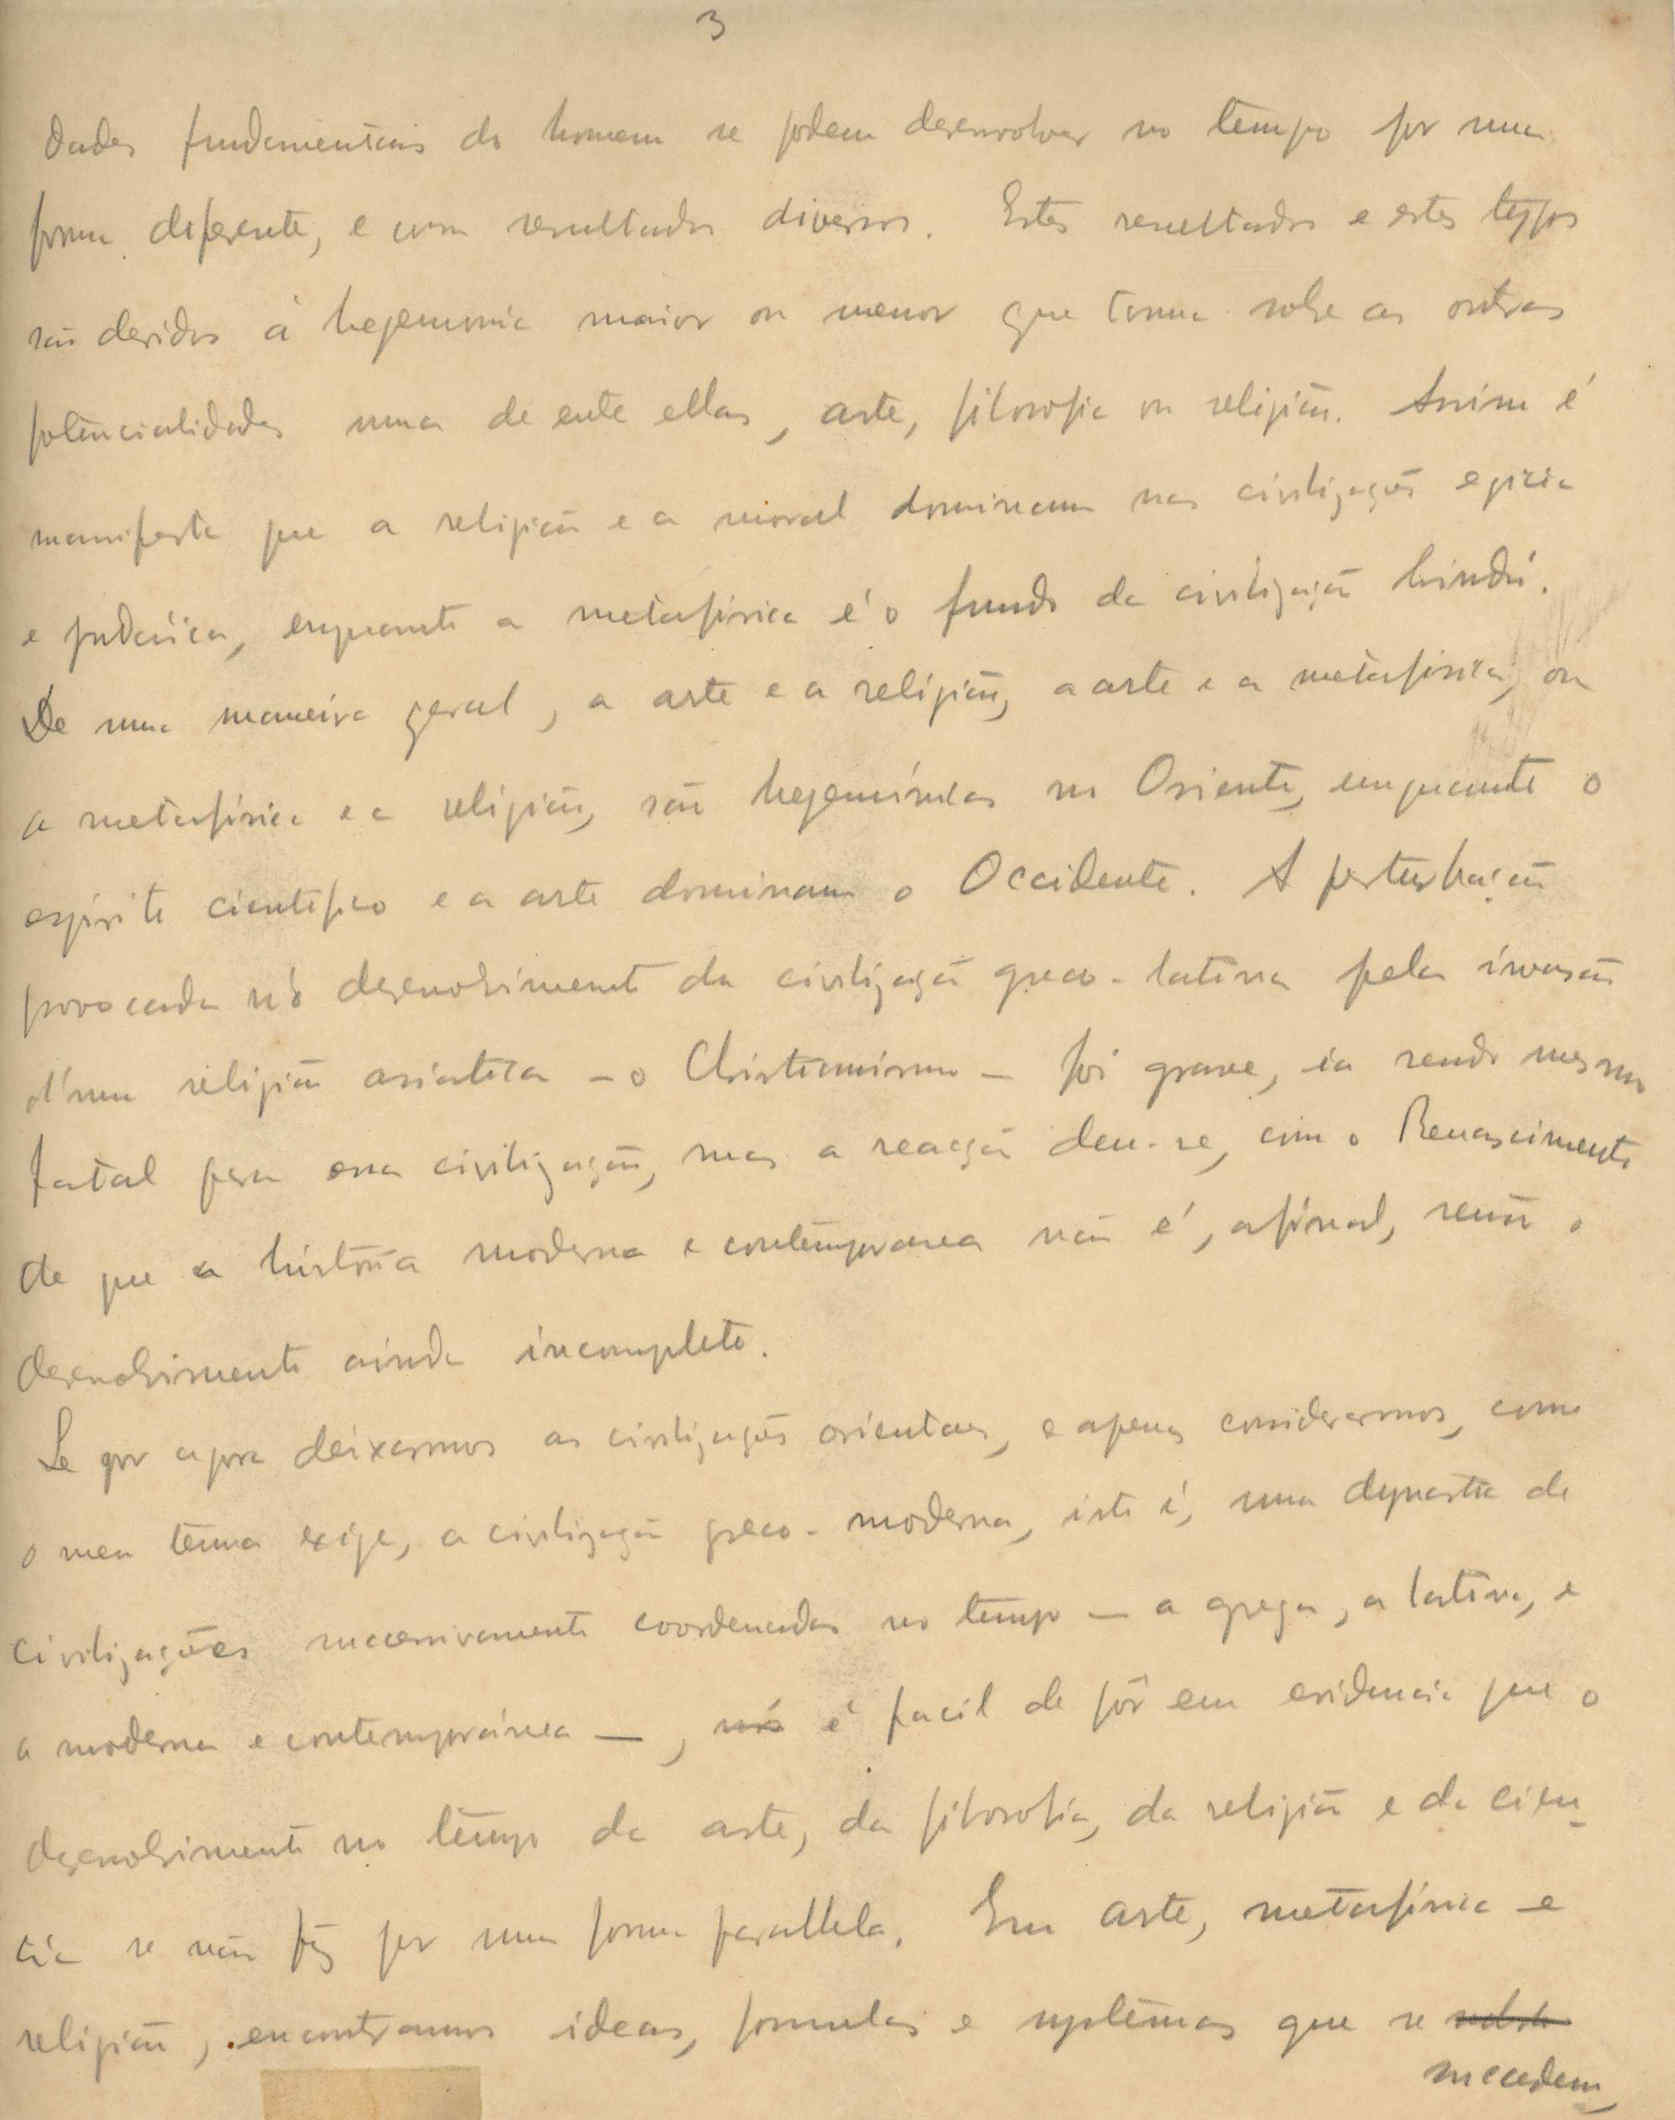 3
dades fundamentais do homem se podem desenvolver no tempo por uma
forma differente, e com resultados diversos. Estes resultados e estes typos
são devidos á hegemonia maior ou menor que toma sobre as outras
potencialidades uma de entre ellas, arte, filosofia ou religião. Assim é
manifesto que a religião e a moral dominam nas civilizações egicia
e judaica, emquanto a metafisica é o fundo da civilização hindú.
De uma maneira geral, a arte e a religião, a arte e a metafisica, ou
a metafisica e a religião, são hegemónicas no Oriente, emquanto o
espirito cientifico e a arte dominam o Occidente. A perturbação
provocada no desenvolvimento da civilização greco-latina pela invasão
d'uma religião asiatica – o Christianismo – foi grave, ia sendo mesmo
fatal para essa civilização, mas a reacção deu-se, com o Renascimento
de que a historia moderna e contemporanea não é, afinal, senão o
desenvolvimento ainda incompleto.
Se por agora deixarmos as civilizações orientaes, e apenas considerarmos, como
o meu tema exige, a civilização greco-moderna, isto é, uma dynastia de
civilizações successivamente coordenadas no tempo – a grega, a latina, e
a moderna e contemporánea –, não é facil de pôr em evidencia que o
desenvolvimento no tempo da arte, da filosofia, da religião e da cien-
cia se não fez por uma forma parallela. Em arte, metafisica e
religião, encontramos ideas, formulas e systemas que se
succedem,